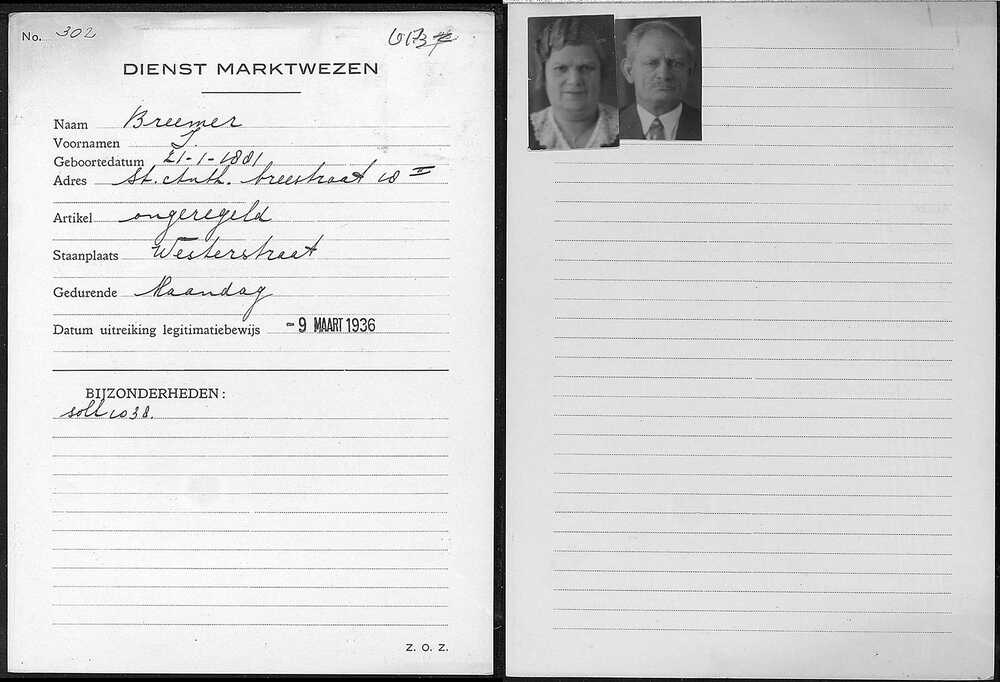 No. 302
DIENST MARKTWEZEN
Naam Breemer
Voornamen J.
Geboortedatum 21-1-1881
Adres St. Anth. breestraat 18 II
Artikel ongeregeld
Staanplaats Westerstraat
Gedurende Maandag
Datum uitreiking legitimatiebewijs -9 MAART 1936
BIJZONDERHEDEN:
soll 1038.
Z. O. Z.